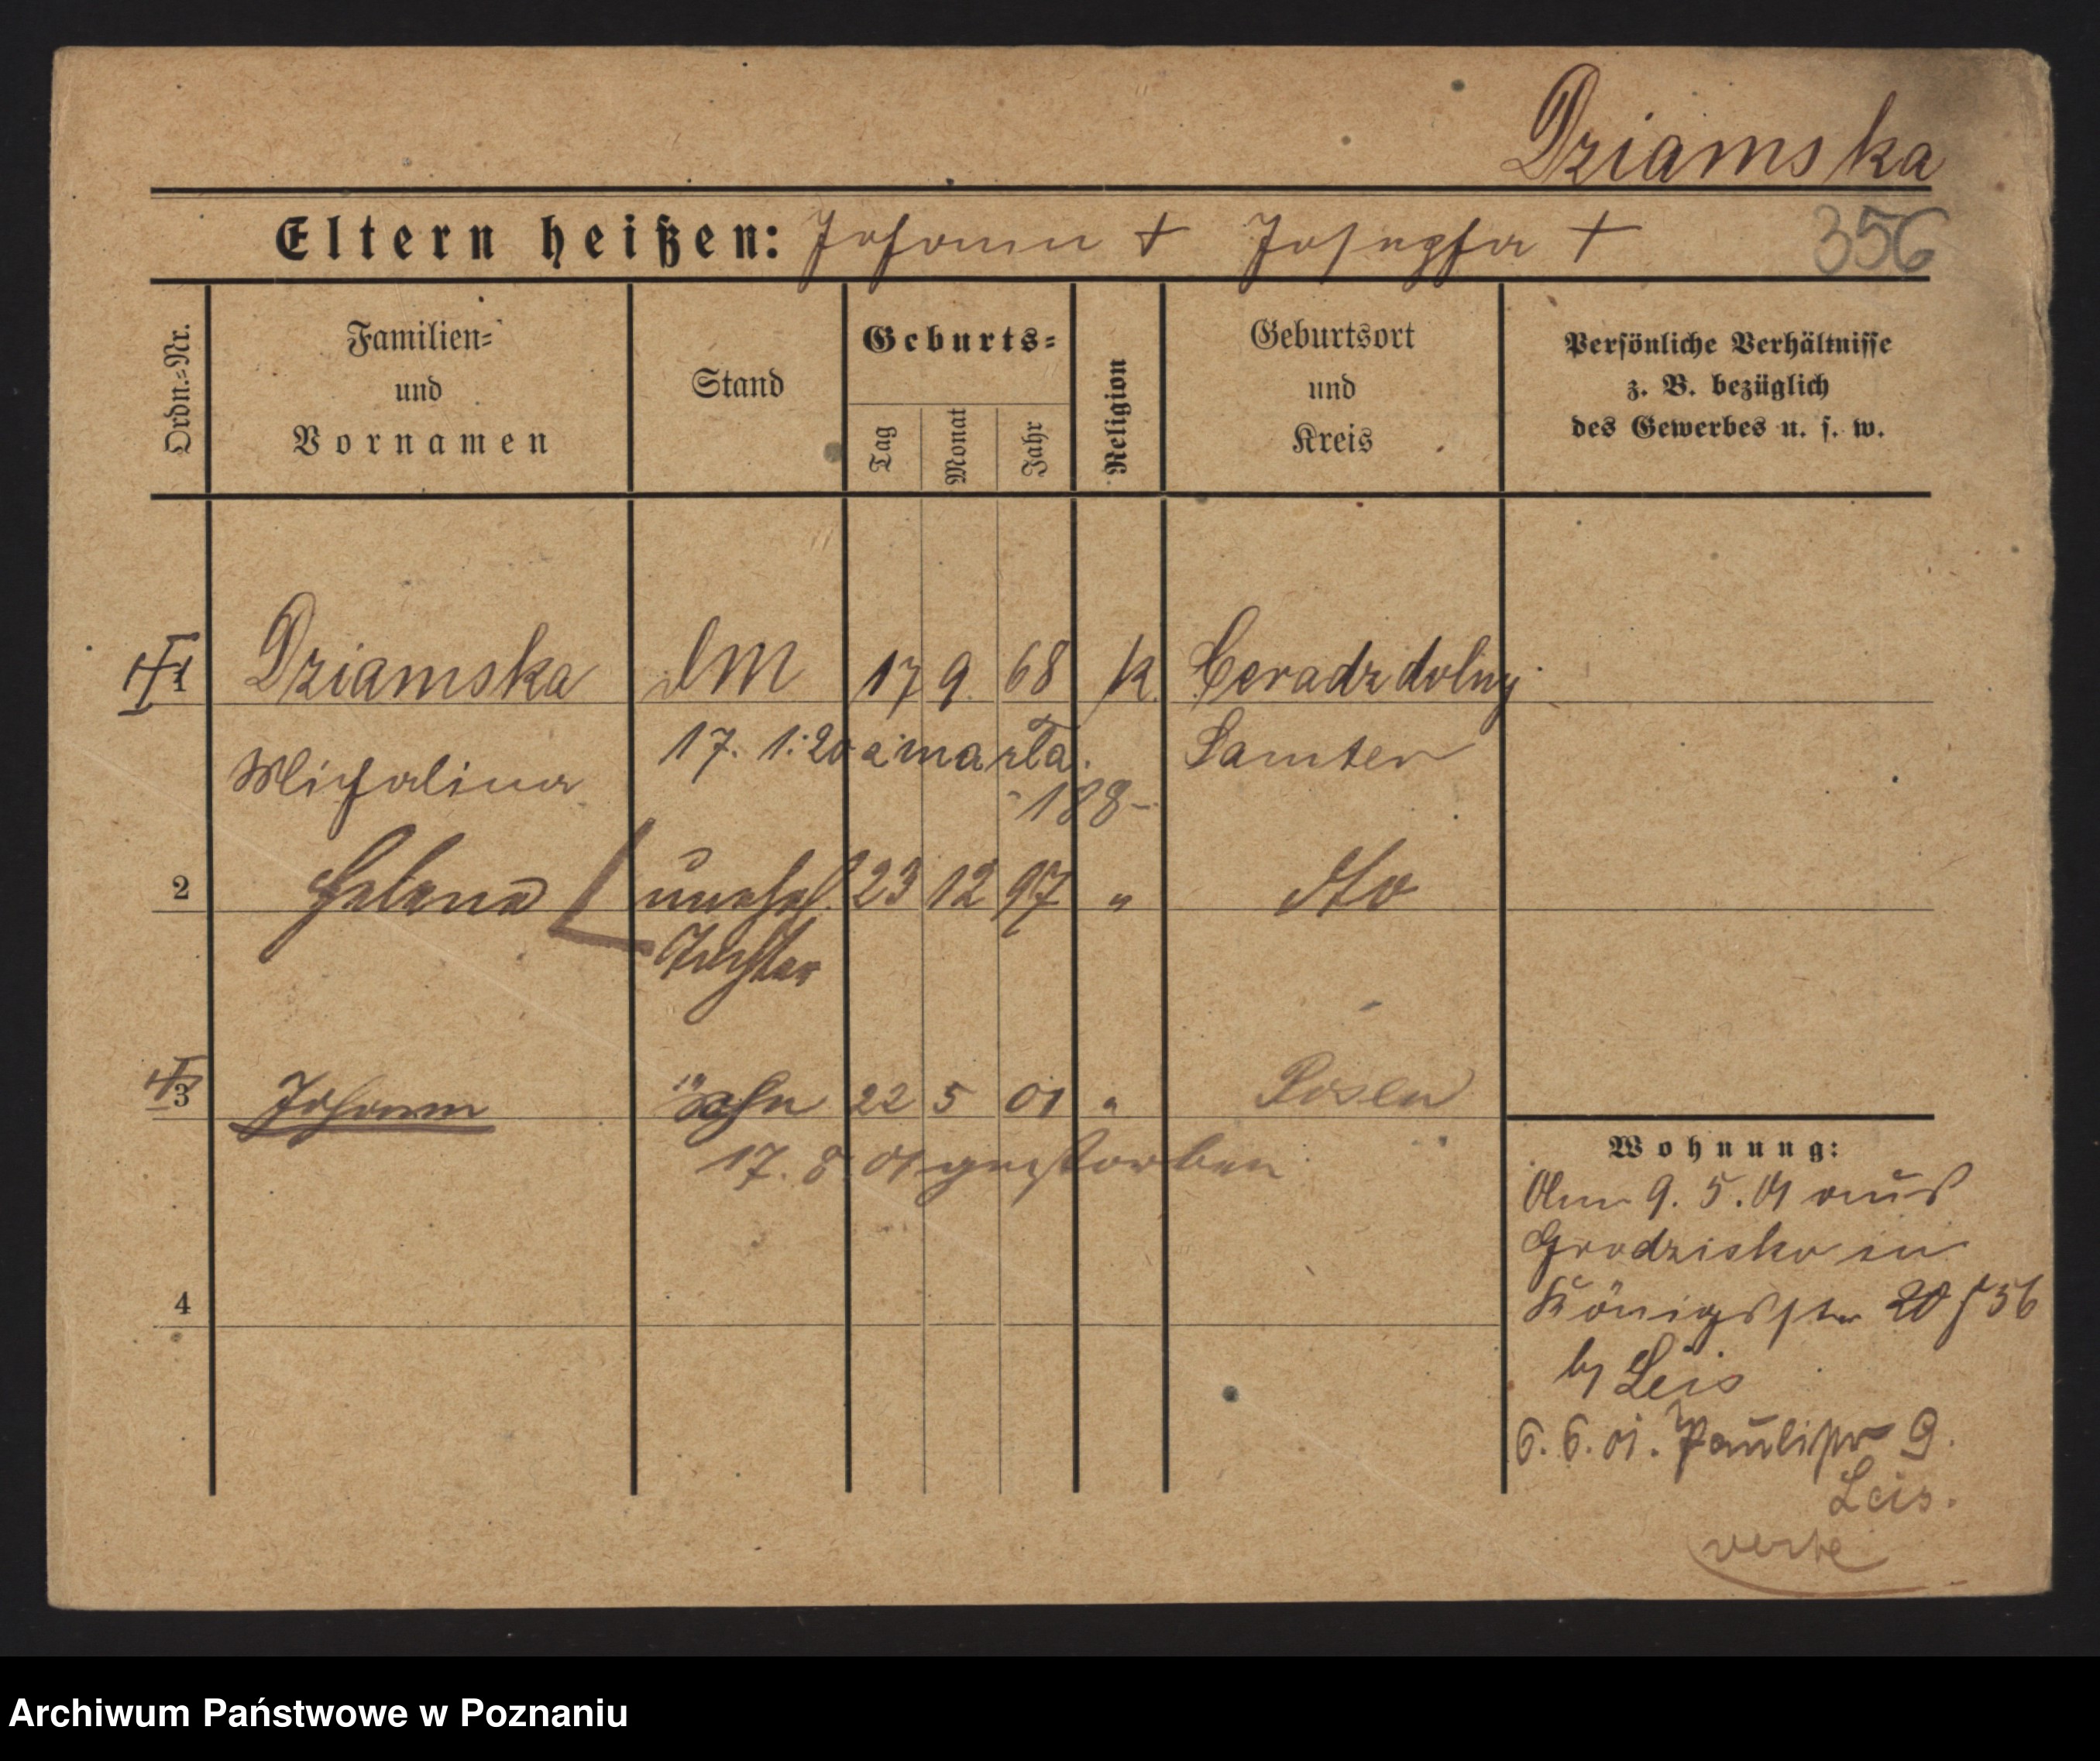 Dziamska
Eltern heißen: Johann + Josepha +
356
Ordn.=Nr.
Familien=
und
Vornamen
Stand
Geburts=
Tag
Monat
Jahr
Religion
Geburtsort
und
Kreis
Persönliche Verhältnisse
z. B. bezüglich
des Gewerbes u. s. w.
1 Dziamska 17 9. 68 k. Ceradz dolny
Michalina 17. 1. 20 zmarła. Samter
-188-
2 Helena unehel. 23 12 97 " dto
Tochter
3 Johann " Sohn 22 5 01 " Posen
17. 8. 01 gestorben
4
Wohnung:
Am 9. 5. 01 aus
Grodzisko in
Königsstr 20 f 56
by Leis
6. 6. 01. Paulistr 9.
Leis.
verte
Archiwum Państwowe w Poznaniu